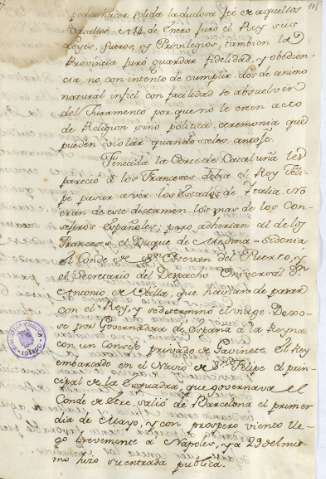 vasallos, en 14 de Enero juró el Rey sus
Leyes, fueros, y Privilegios, tambien la
Provincia juró guardar fidelidad, y obedien
cia no con intento de cumplir
natural infiel con facilidad se absuelve
del Juramento por que no le creen acto
de Religion sino politica, ceremonia que
pueden violar quando
Fenecida la Corte de Cataluña les
pareció à los Franceses debia el Rey Feli
pe pasar a vèr los Estados de Italia. No
eran de este dictamen los mas de los Con
sejeros Españoles, pero adherian al de los
Franceses el Duque de Medina-Sidonia
el Conde de San Estevan del Puerto, y
el Secretario del Despacho Universal Dn
Antonio de Ubilla, que havian de pasar
con el Rey, y se determinó el viage
por Governadora de España la Reyna
con un Consejo privado de Gavinete. El Rey
embarcado en el Navio de Sn Felipe el prin
cipal de la Esquadra, que governava el
Conde de salió de Barcelona el primer
dia de Mayo, y con prospero viento lle
go brevemente à Napoles, y a 29 del mis
mo hizo su entrada publica.